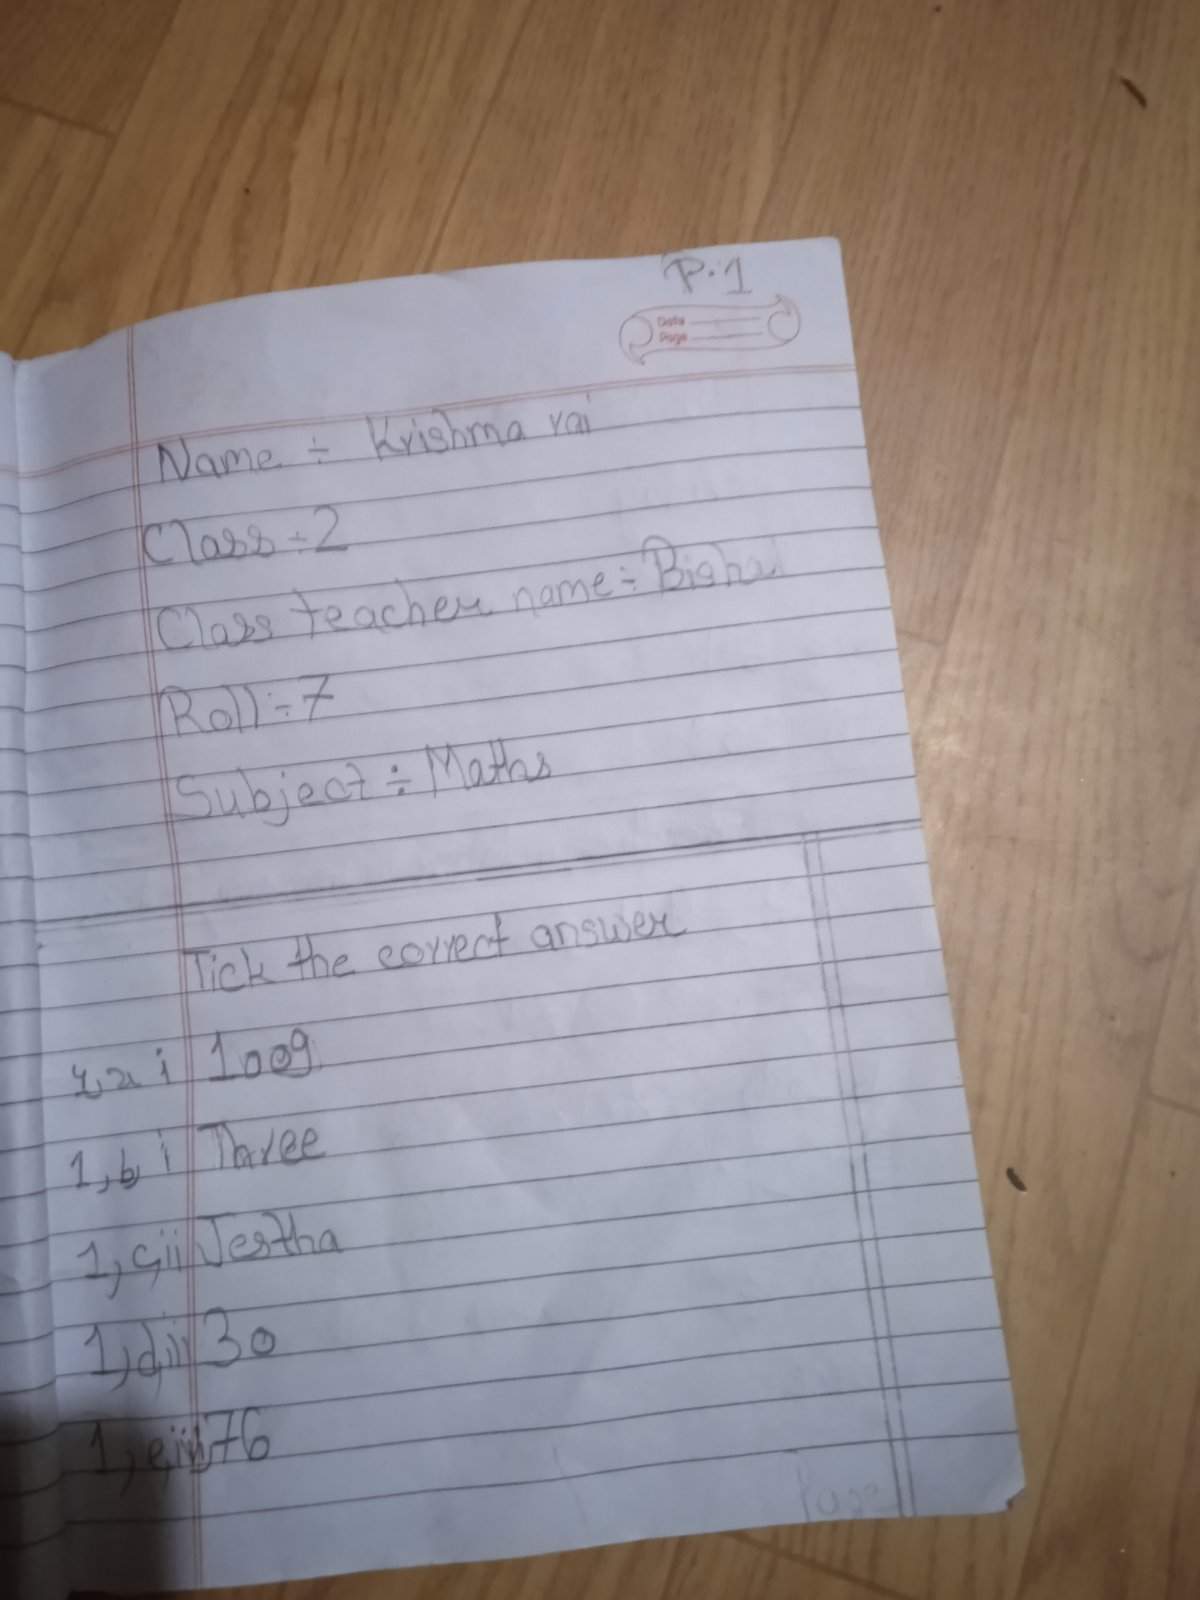 P.1
Date
Page
Name ÷ Krishma rai
Class ÷ 2
Class teacher name ÷ Bishal
Roll ÷ 7
Subject ÷ Maths
Tick the correct answer
1, a i 1009
1, b i Three
1, c, ii Jestha
1, d, ii 30
1, e, iii, 76
Page